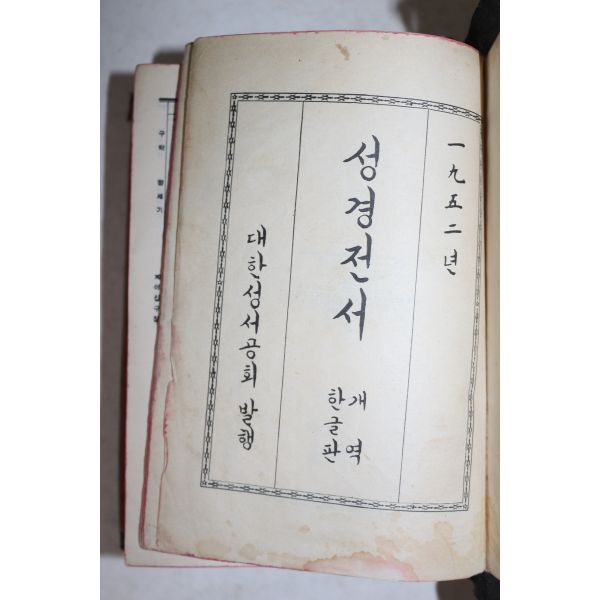 一九五二년
성경전서
개역
한글판
대한성서공회 발행
구약
창세기